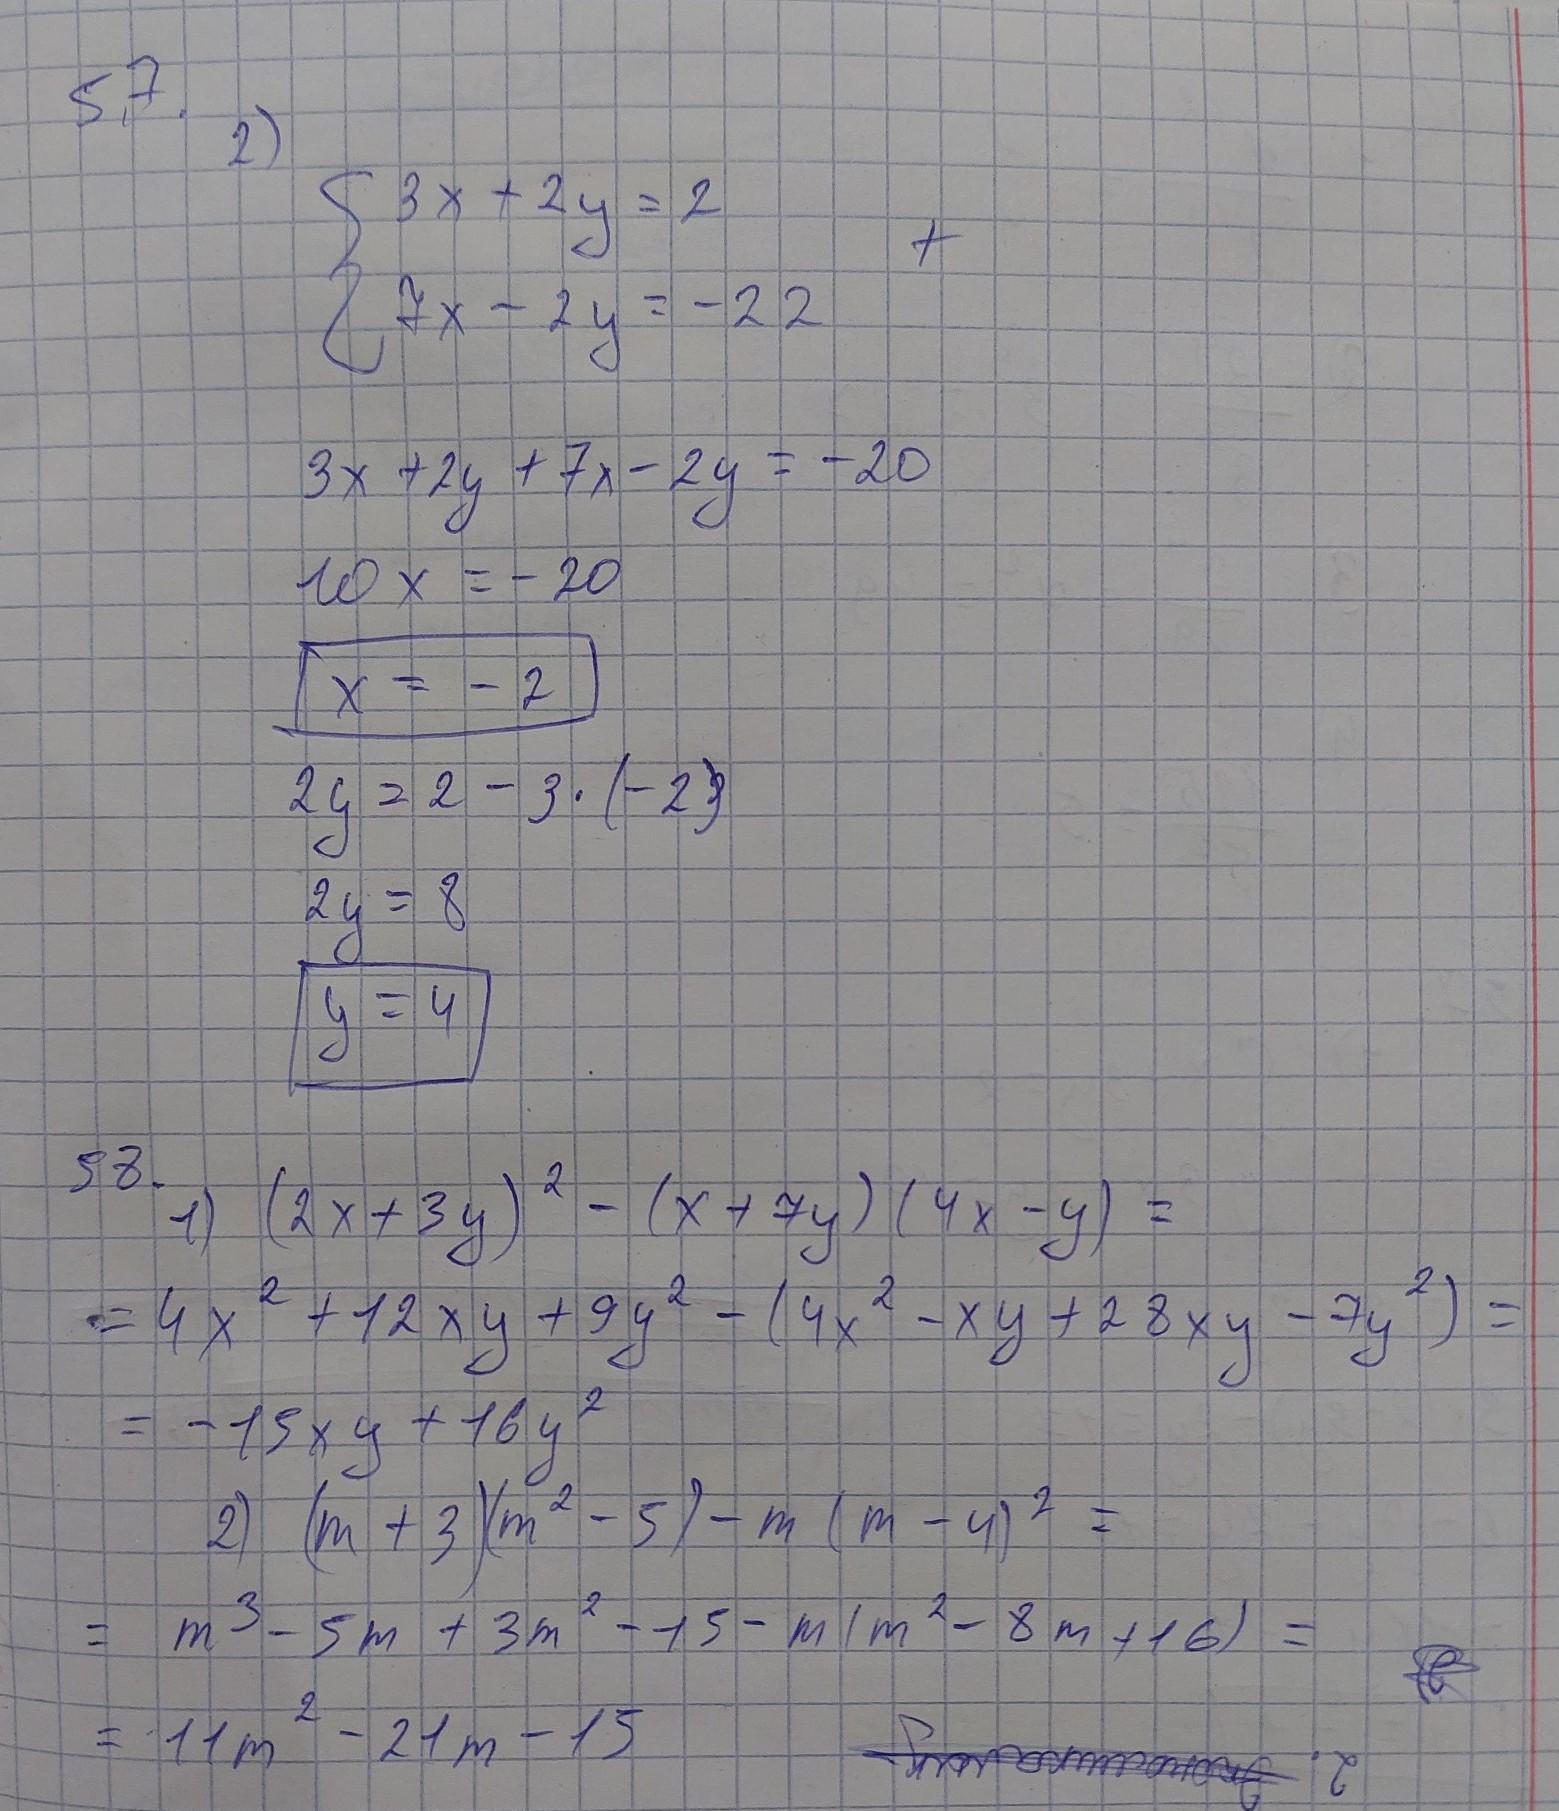 57.
2)
3x + 2y = 2
+
7x - 2y = -22
3x + 2y + 7x - 2y = -20
10x = -20
x = -2
2y = 2 - 3·(-2)
2y = 8
y = 4
58.
1) (2x + 3y)² - (x + 7y)(4x - y) =
= 4x² + 12xy + 9y² - (4x² - xy + 28xy - 7y²) =
= -15xy + 16y²
2) (m + 3)(m² - 5) - m(m - 4)² =
= m³ - 5m + 3m² - 15 - m(m² - 8m + 16) =
= 11m² - 21m - 15
2.